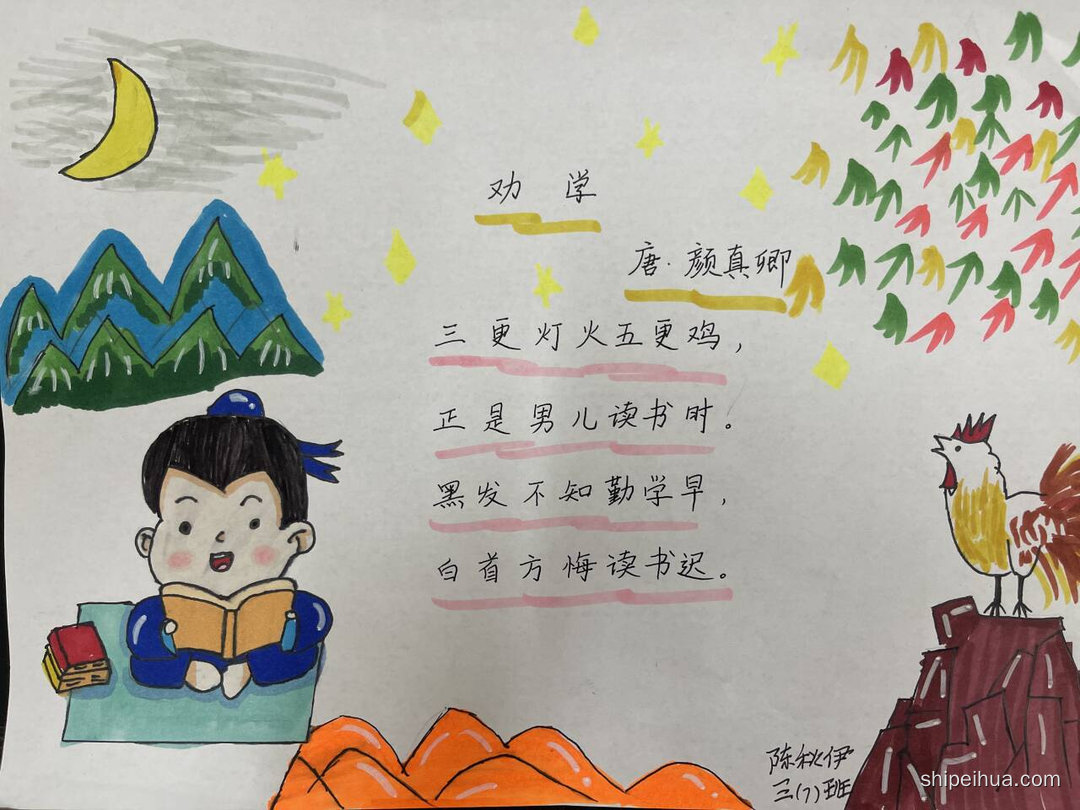 劝 学
唐·颜真卿
三更灯火五更鸡，
正是男儿读书时。
黑发不知勤学早，
白首方悔读书迟。
陈秋伊
三(7)班
shipeihua.com